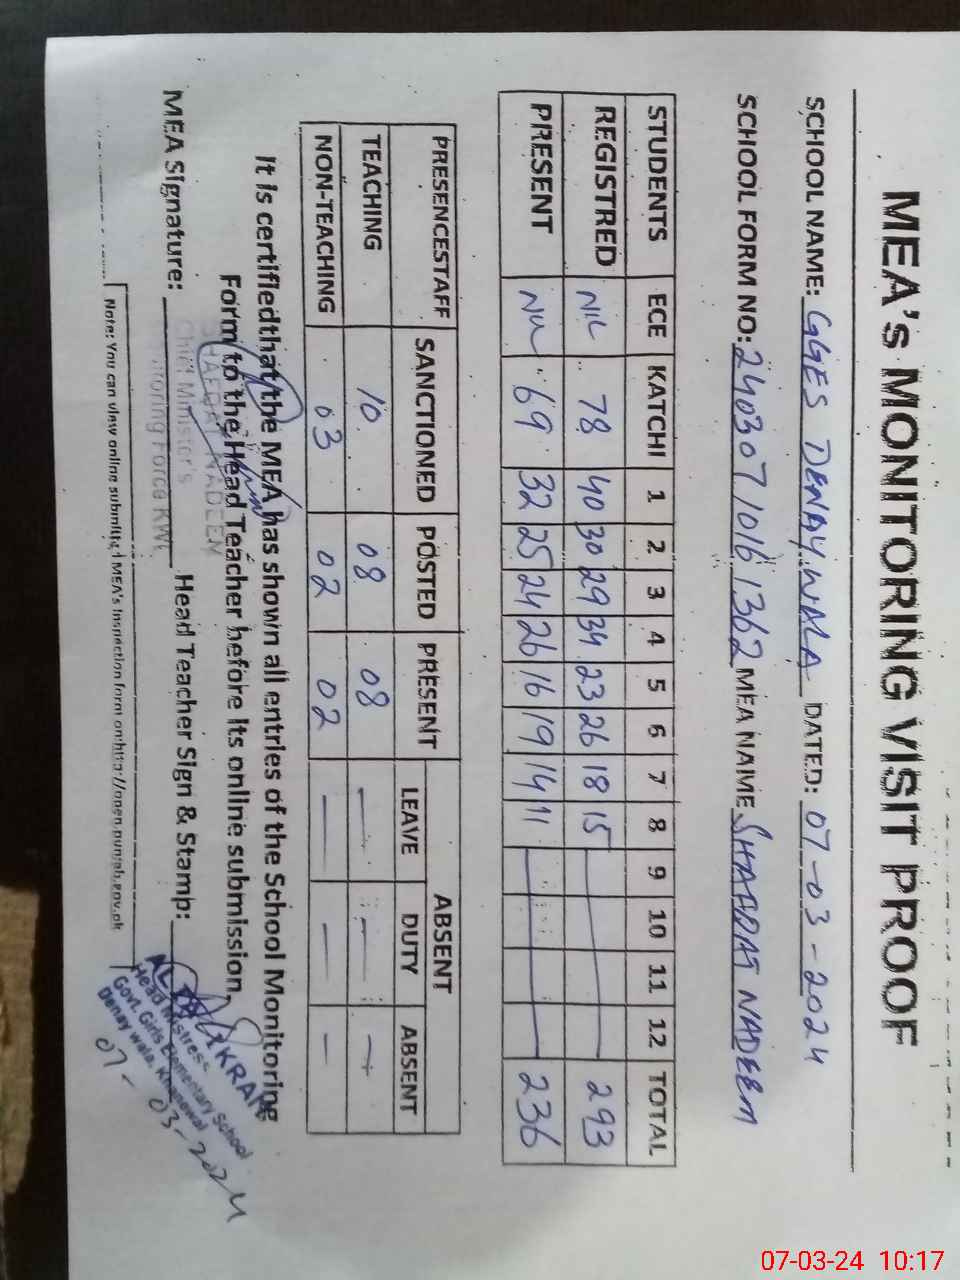 MEA's MONITORING VISIT PROOF
SCHOOL NAME: GGES DENAY WALA DATED: 07-03-2024
SCHOOL FORM NO: 24030710161362 MEA NAME SHAFQAT NADEEM
STUDENTS ECE KATCHI 1 2 3 4 5 6 7 8 9 10 11 12 TOTAL
REGISTRED NIL 78 40 30 29 34 23 26 18 15 293
PRESENT NIL 69 32 25 24 26 16 19 14 11 236
PRESENCESTAFF SANCTIONED POSTED PRESENT ABSENT
LEAVE DUTY ABSENT
TEACHING 10 08 08
NON-TEACHING 03 02 02
It is certifiedthat the MEA has shown all entries of the School Monitoring
Form to the Head Teacher before its online submission.
SHAFQAT NADEEM
Chief Minister's
Monitoring Force KWL
MEA Signature: Head Teacher Sign & Stamp:
Head Mistress
Govt. Girls Elementary School
Denay wala, Khanewal
07-03-2024
Note: You can view online submitted MEA's Inspection form on:http://open.punjab.gov.pk
07-03-24 10:17